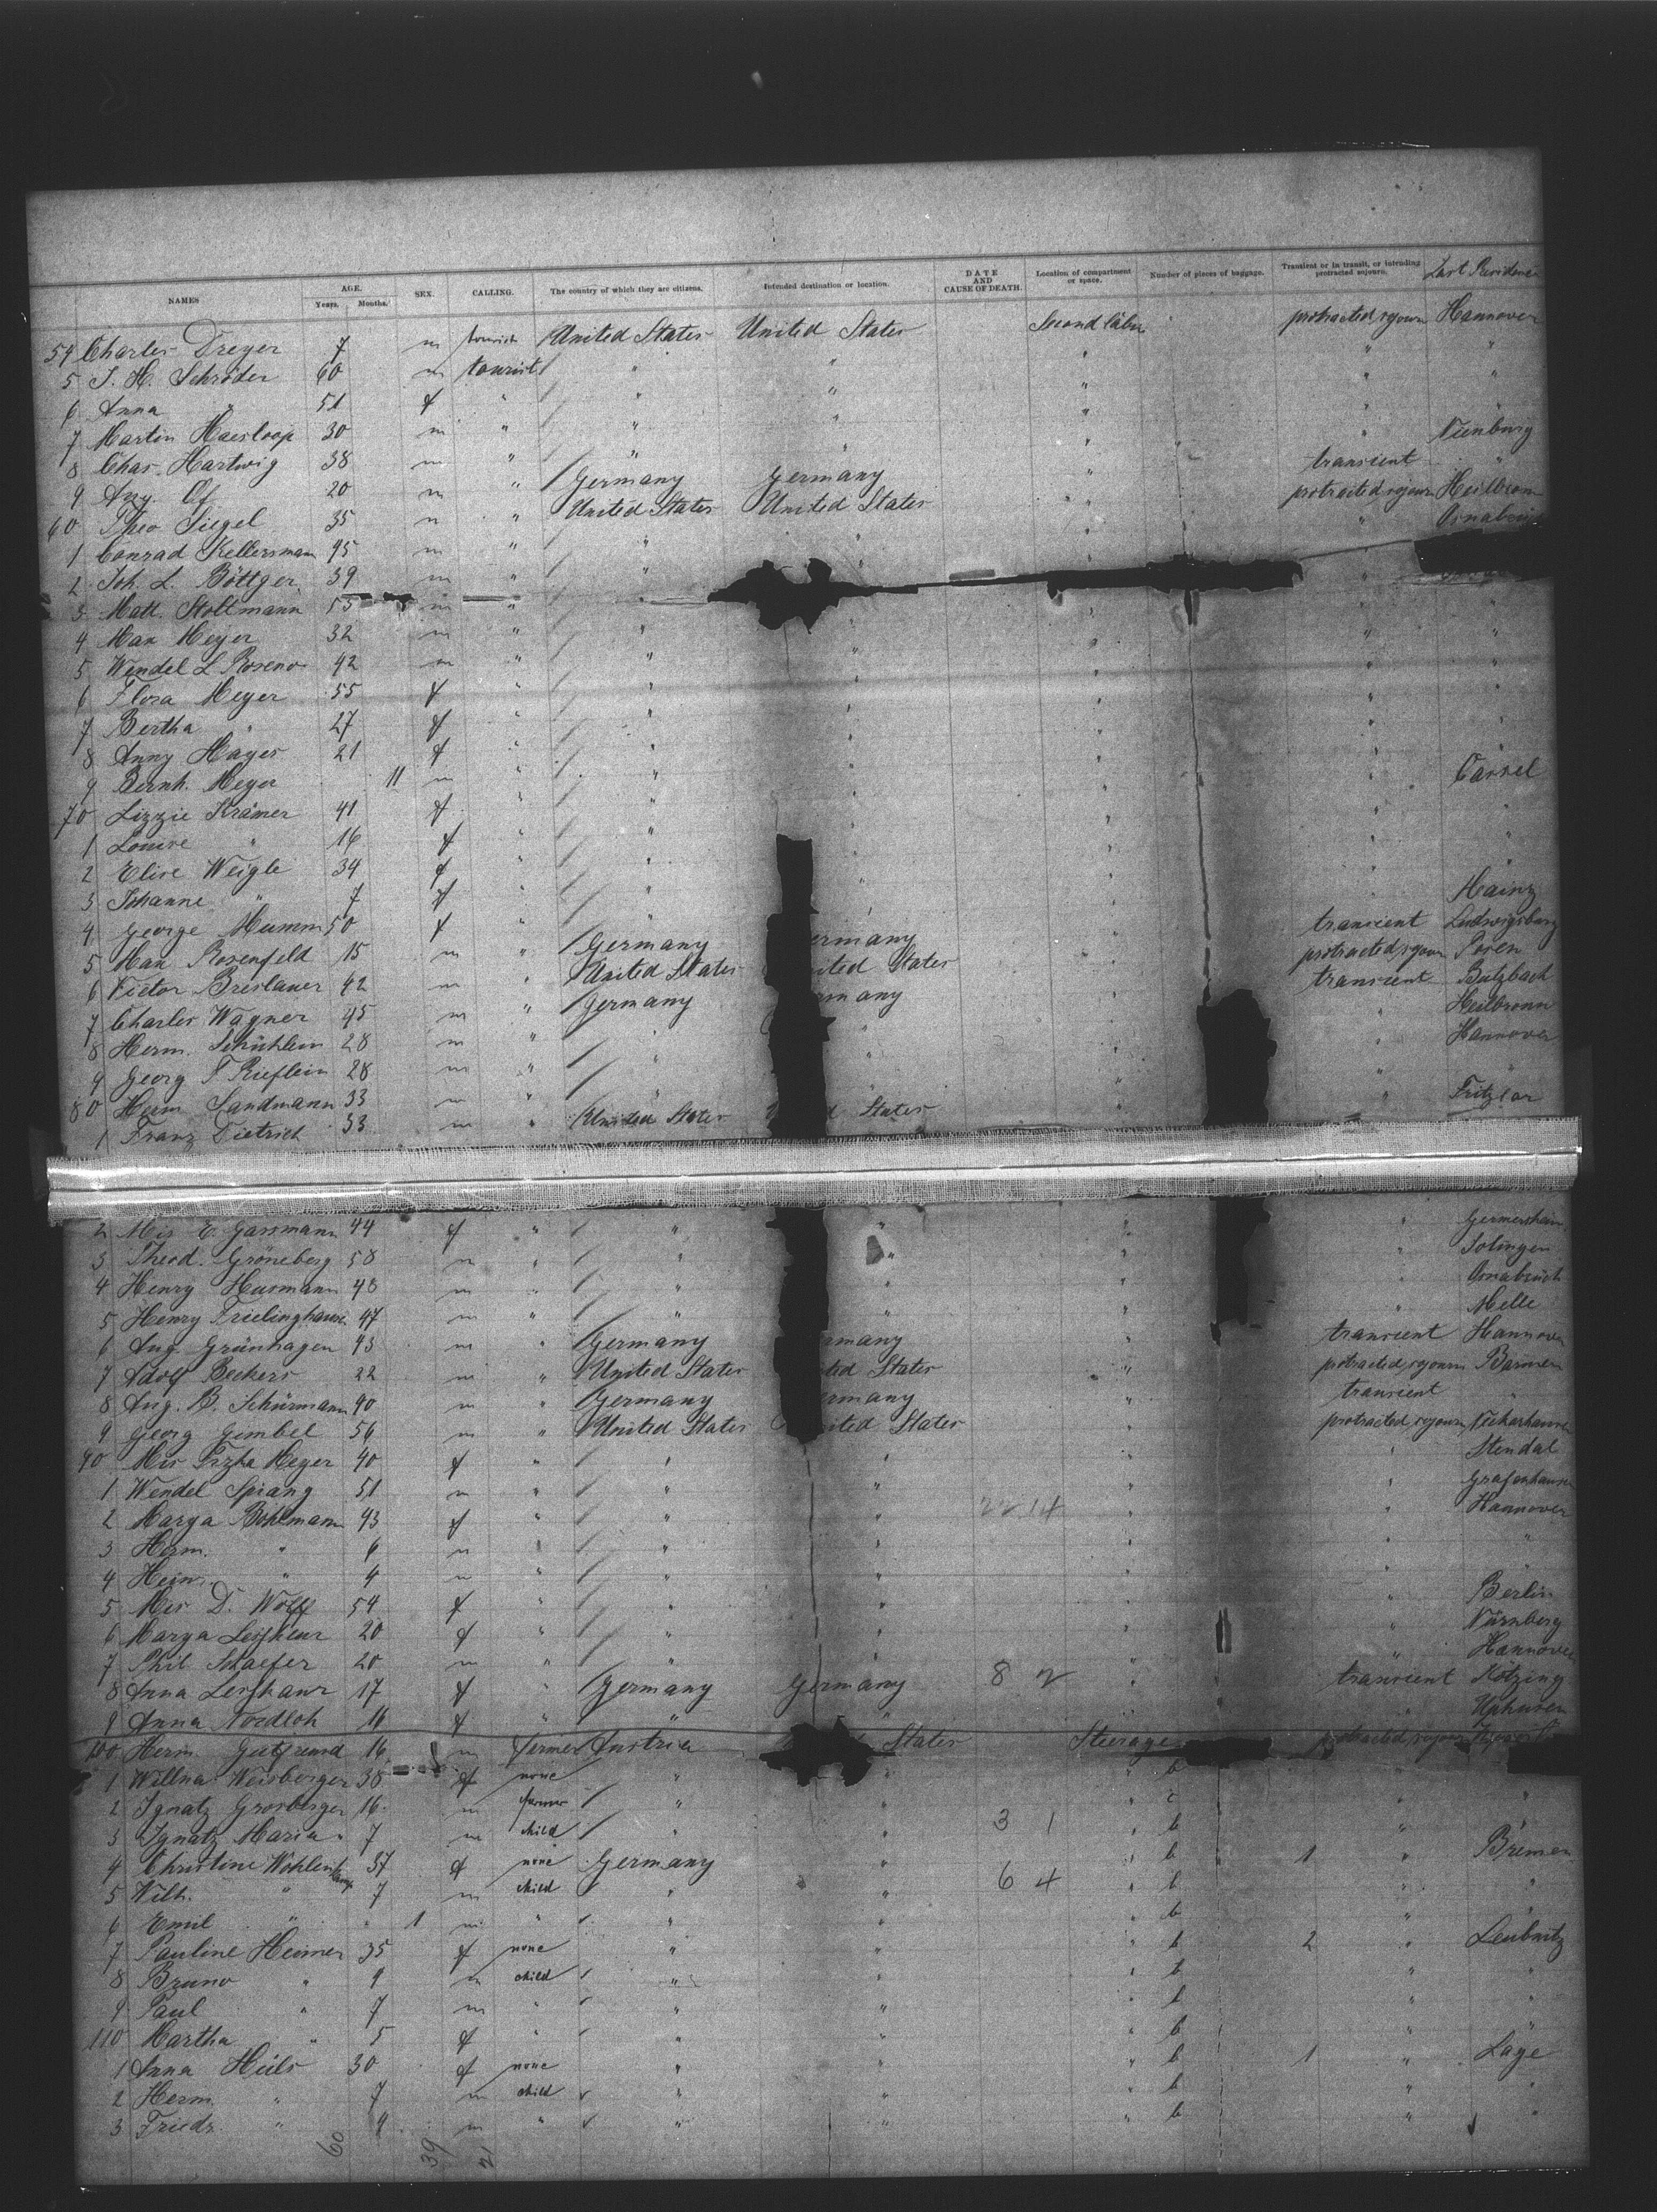 NAMES AGE. Years. Months. SEX. CALLING. The country of which they are citizens. Intended destination or location. DATE AND CAUSE OF DEATH. Location of compartment or space. Number of pieces of baggage. Transient or in transit, or intending protracted sojourn. Last Residence
54 Charles Dreyer 7 m tourist United States United States Second Cabin protracted sojourn Hannover
5 J. H. Schröder 60 m tourist " " " " "
6 Anna " 51 f " " " " " "
7 Martin Haesloop 30 m " " " " "
8 Chas. Hartwig 38 m " " " " " Nienburg
9 Aug. Of 20 m " Germany Germany " transient "
60 Theo Siegel 35 m " United States United States " protracted sojourn Heilbronn
1 Conrad Kellersmann 45 m " " " " "
2 Joh. L. Böttger 39 m "
3 Matt. Stoltmann 55 m " "
4 Max Meyer 32 m " " " " " "
5 Wendel L. Roseno 42 m " " " " " "
6 Flora Meyer 55 f " " " " " "
7 Bertha " 27 f " " " " " "
8 Anny Hayes 21 f " " " " "
9 Bernh. Meyer 11 m " " " " " Cassel
70 Lizzie Krämer 41 f " " " " "
1 Louise " 16 f " " " " "
2 Elise Weigle 34 f " " " "
3 Johanne " 7 f " " " " Mainz
4 George Mumm 50 f " " " transient Ludwigsburg
5 Max Rosenfeld 15 m " Germany ermany " protracted sojourn Posen
6 Victor Breslauer 42 m " United States ited States " transient Butzbach
7 Charles Wagner 45 m " Germany rmany " " Heilbronn
8 Herm. Schühlein 28 m " " " " " Hannover
9 Georg F Rieflein 28 m " " " " "
80 Herm Sandmann 33 m " " " " Fritzlar
1 Franz Dietrich 33 m " United States d States
2 Mis E. Gassmann 44 f " " " " " Germersheim
3 Theod. Gröneberg 58 m " " " " " Solingen
4 Henry Husmann 48 m " " " " " Osnabrück
5 Henry Frielinghausen 47 m " " " " " Melle
6 Aug. Grünhagen 43 m " Germany rmany " transient Hannover
7 Adolf Beckers 22 m " United States ited States " protracted sojourn Barmen
8 Aug. B. Schürmann 40 m " Germany ermany " transient "
9 Georg Gimbel 56 m " United States United States " protracted sojourn
90 Mis Meyer 40 f " " " " " Stendal
1 Wendel Spiang 51 m " " " " " Grafenhausen
2 Marga Böhlmann 43 f " " " 22 14 " " Hannover
3 Herm. " 6 m " " " " " "
4 Hein. " 4 m " " " "
5 Mis D. Wolff 54 f " " " " " Berlin
6 Marga 20 f " " " " " Nürnberg
7 Phil Schaefer 20 m " " " " Hannover
8 Anna 17 f " Germany Germany 8 2 " transient Kötzing
9 Anna Nordloh 16 f " " " " Uphusen
100 Herm. Gutfreund 16 m farmer Austria States Steerage protracted sojourn
1 Willna Weisberger 38 f none " " " b "
2 Ignatz Grosberger 16 m farmer " " " c " "
3 Ignatz Maria " 7 m child " " 3 1 " b "
4 Christine Wohlenkamp 37 f none Germany " " b 1 " Bremen
5 Wilh. " 7 m child " " 6 4 " b " "
6 Emil " " 1 m " " " b "
7 Pauline Heimer 35 f none " " " b 2 " Leubnitz
8 Bruno " 9 m child " " b " "
9 Paul " 7 m " " " " b " "
110 Martha " 5 f " " " " b " "
1 Anna Hüls 30 f none " " " b 1 " Lage
2 Herm. " 7 m child " " " b " "
3 Friedr. " 4 m " " " " b " "
60 39 21